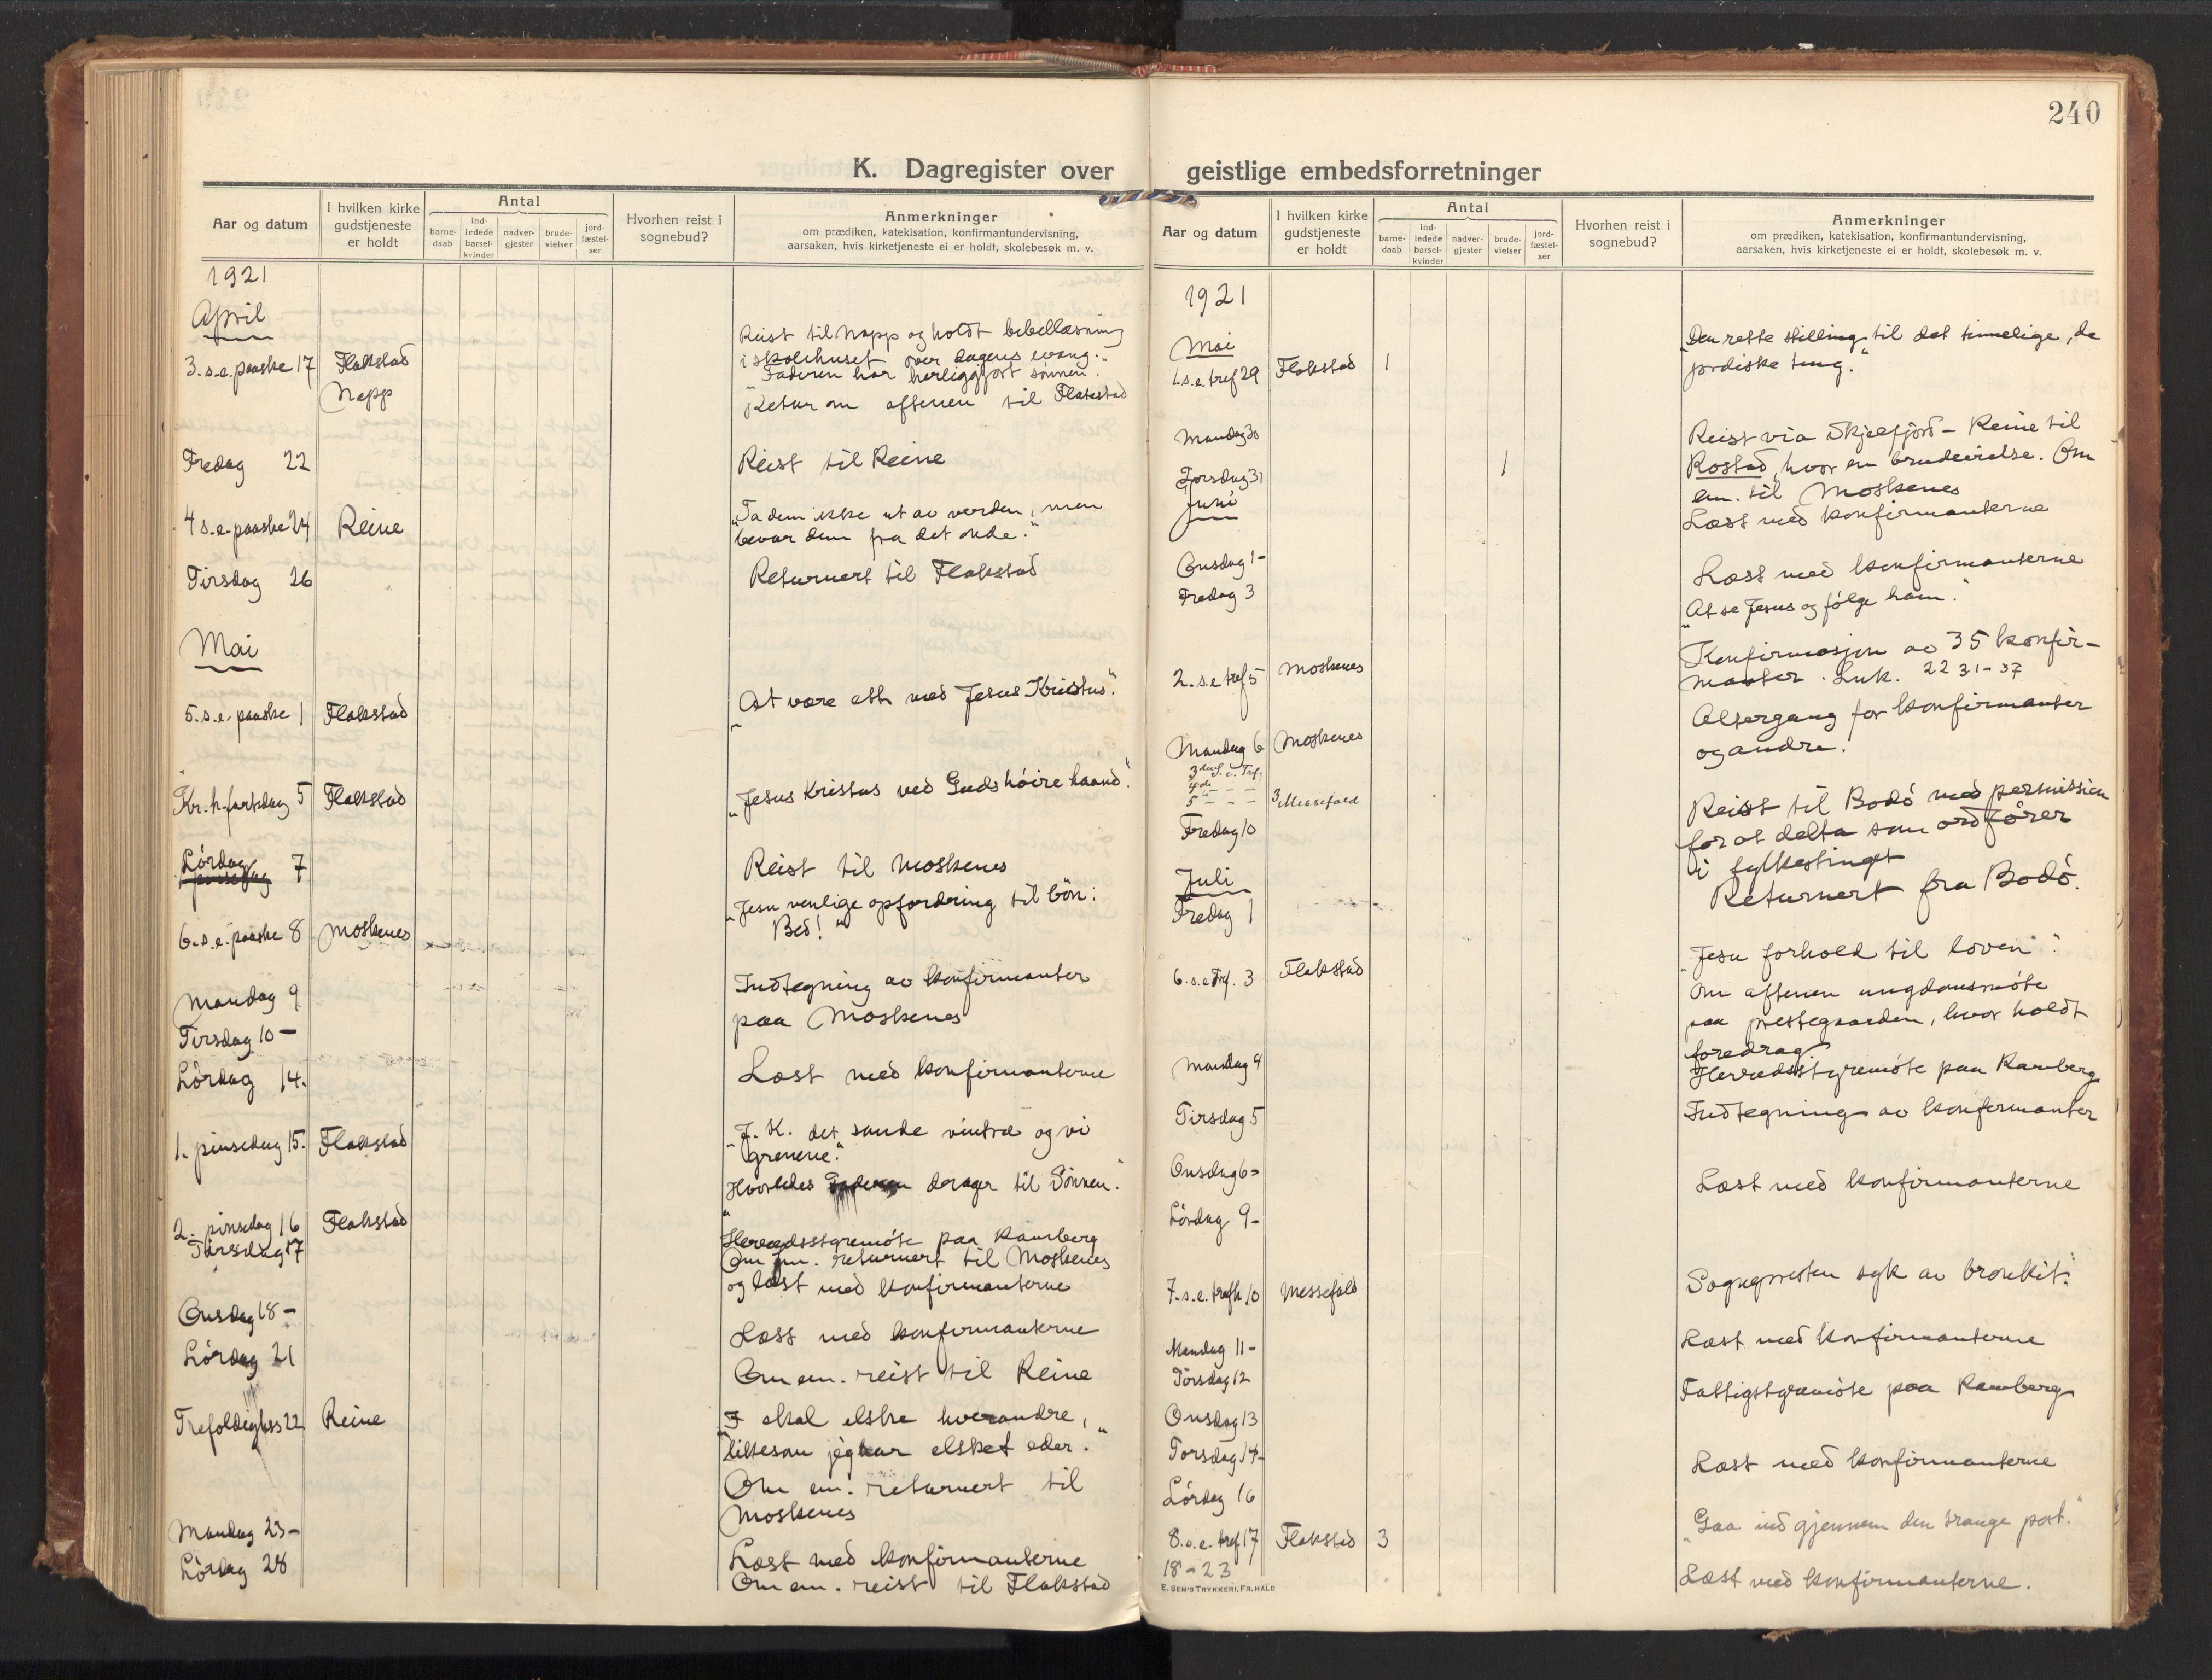 240
K. Dagregister over geistlige embedsforretninger
Aar og datum
I hvilken kirke gudstjeneste er holdt
Antal
barne-daab
ind-ledede barsel-kvinder
nadver-gjester
brude-vielser
jord-fæstel-ser
Hvorhen reist i sognebud?
Anmerkninger
om prædiken, katekisation, konfirmantundervisning,
aarsaken, hvis kirketjeneste ei er holdt, skolebesøk m. v.
1921
April
Reist til Napp og holdt bibellæsning
i skolehuset over dagens evang.:
3. s.e. paaske 17 Flakstad
"Faderen har herliggjort sønnen."
Napp
Retur om aftenen til Flakstad
Fredag 22 Reist til Reine
4 s.e. paaske 24 Reine "Ta dem ikke ut av verden, men
bevar dem fra det onde."
Tirsdag 26 Returnert til Flakstad
Mai
5. s.e. paaske 1 Flakstad "At være ett med Jesus Kristus."
Kr. h. fartsdag 5 Flakstad "Jesus Kristus ved Guds høire haand."
Lördag 7 Reist til Moskenes
6. s.e. paaske 8 Moskenes "Jesu venlige opfordring til bön:
Bed!"
Mandag 9 Indtegning av konfirmanter
paa Moskenes
Tirsdag 10 –
Lördag 14. Læst med konfirmanterne
1. pinsedag 15. Flakstad "J. K. det sande vintræ og vi
grenene."
2. pinsedag 16 Flakstad "Hvorledes Faderen drager til Sönnen."
Tirsdag 17 Herredsstyremöte paa Ramberg
Om em. returnert til Moskenes
og læst med konfirmanterne
Onsdag 18 –
Læst med konfirmanterne
Lördag 21 Om em. reist til Reine
Trefoldighss 22 Reine "I skal elske hverandre,
likesom jeg har elsket eder."
Om em. returnert til
Moskenes
Mandag 23 –
Læst med konfirmanterne
Lördag 28 Om em. reist til Flakstad
Aar og datum
I hvilken kirke gudstjeneste er holdt
Antal
barne-daab
ind-ledede barsel-kvinder
nadver-gjester
brude-vielser
jord-fæstel-ser
Hvorhen reist i sognebud?
Anmerkninger
om prædiken, katekisation, konfirmantundervisning,
aarsaken, hvis kirketjeneste ei er holdt, skolebesøk m. v.
1921
Mai
1. s.e. tref 29 Flakstad 1 "Den rette stilling til det timelige, de
jordiske ting."
Mandag 30 Reist via Skjelfjord – Reine til
Torsdag 31 1 Rostad, hvor en brudevielse. Om
em. til Moskenes
Juni
Læst med konfirmanterne
Onsdag 1 –
Fredag 3 Læst med konfirmanterne
"At se Jesus og følge ham."
2. s.e. tref 5 Moskenes Konfirmasjon av 35 konfir-
manter. Luk. 22 31-37
Mandag 6 Moskenes Altergang for konfirmanter
og andre.
3die S. e. Tref.
4de – – –
5 – – – 3 Messefald
Fredag 10 Reist til Bodö med permission
for at delta som ordförer
i fylkestinget
Juli
Fredag 1 Returnert fra Bodö.
6. s.e. Tref. 3 Flakstad "Jesu forhold til loven".
Om aftenen ungdomsmöte
paa prestegaarden, hvor holdt
foredrag
Mandag 4 Herredsstyremöte paa Ramberg
Tirsdag 5 Indtegning av konfirmanter
Onsdag 6 –
Lördag 9 – Læst med konfirmanterne
7. s.e. trefh 10 Messefald Sognepresten syk av bronkit.
Mandag 11 – Læst med konfirmanterne
Torsdag 12
Onsdag 13 Fattigstyremöte paa Ramberg
Torsdag 14 –
Lördag 16 Læst med konfirmanterne
8. s.e. tref 17 Flakstad 3 "Gaa ind gjennem den trange port."
18 – 23 Læst med konfirmanterne.
E. SEM'S TRYKKERI, FR.HALD